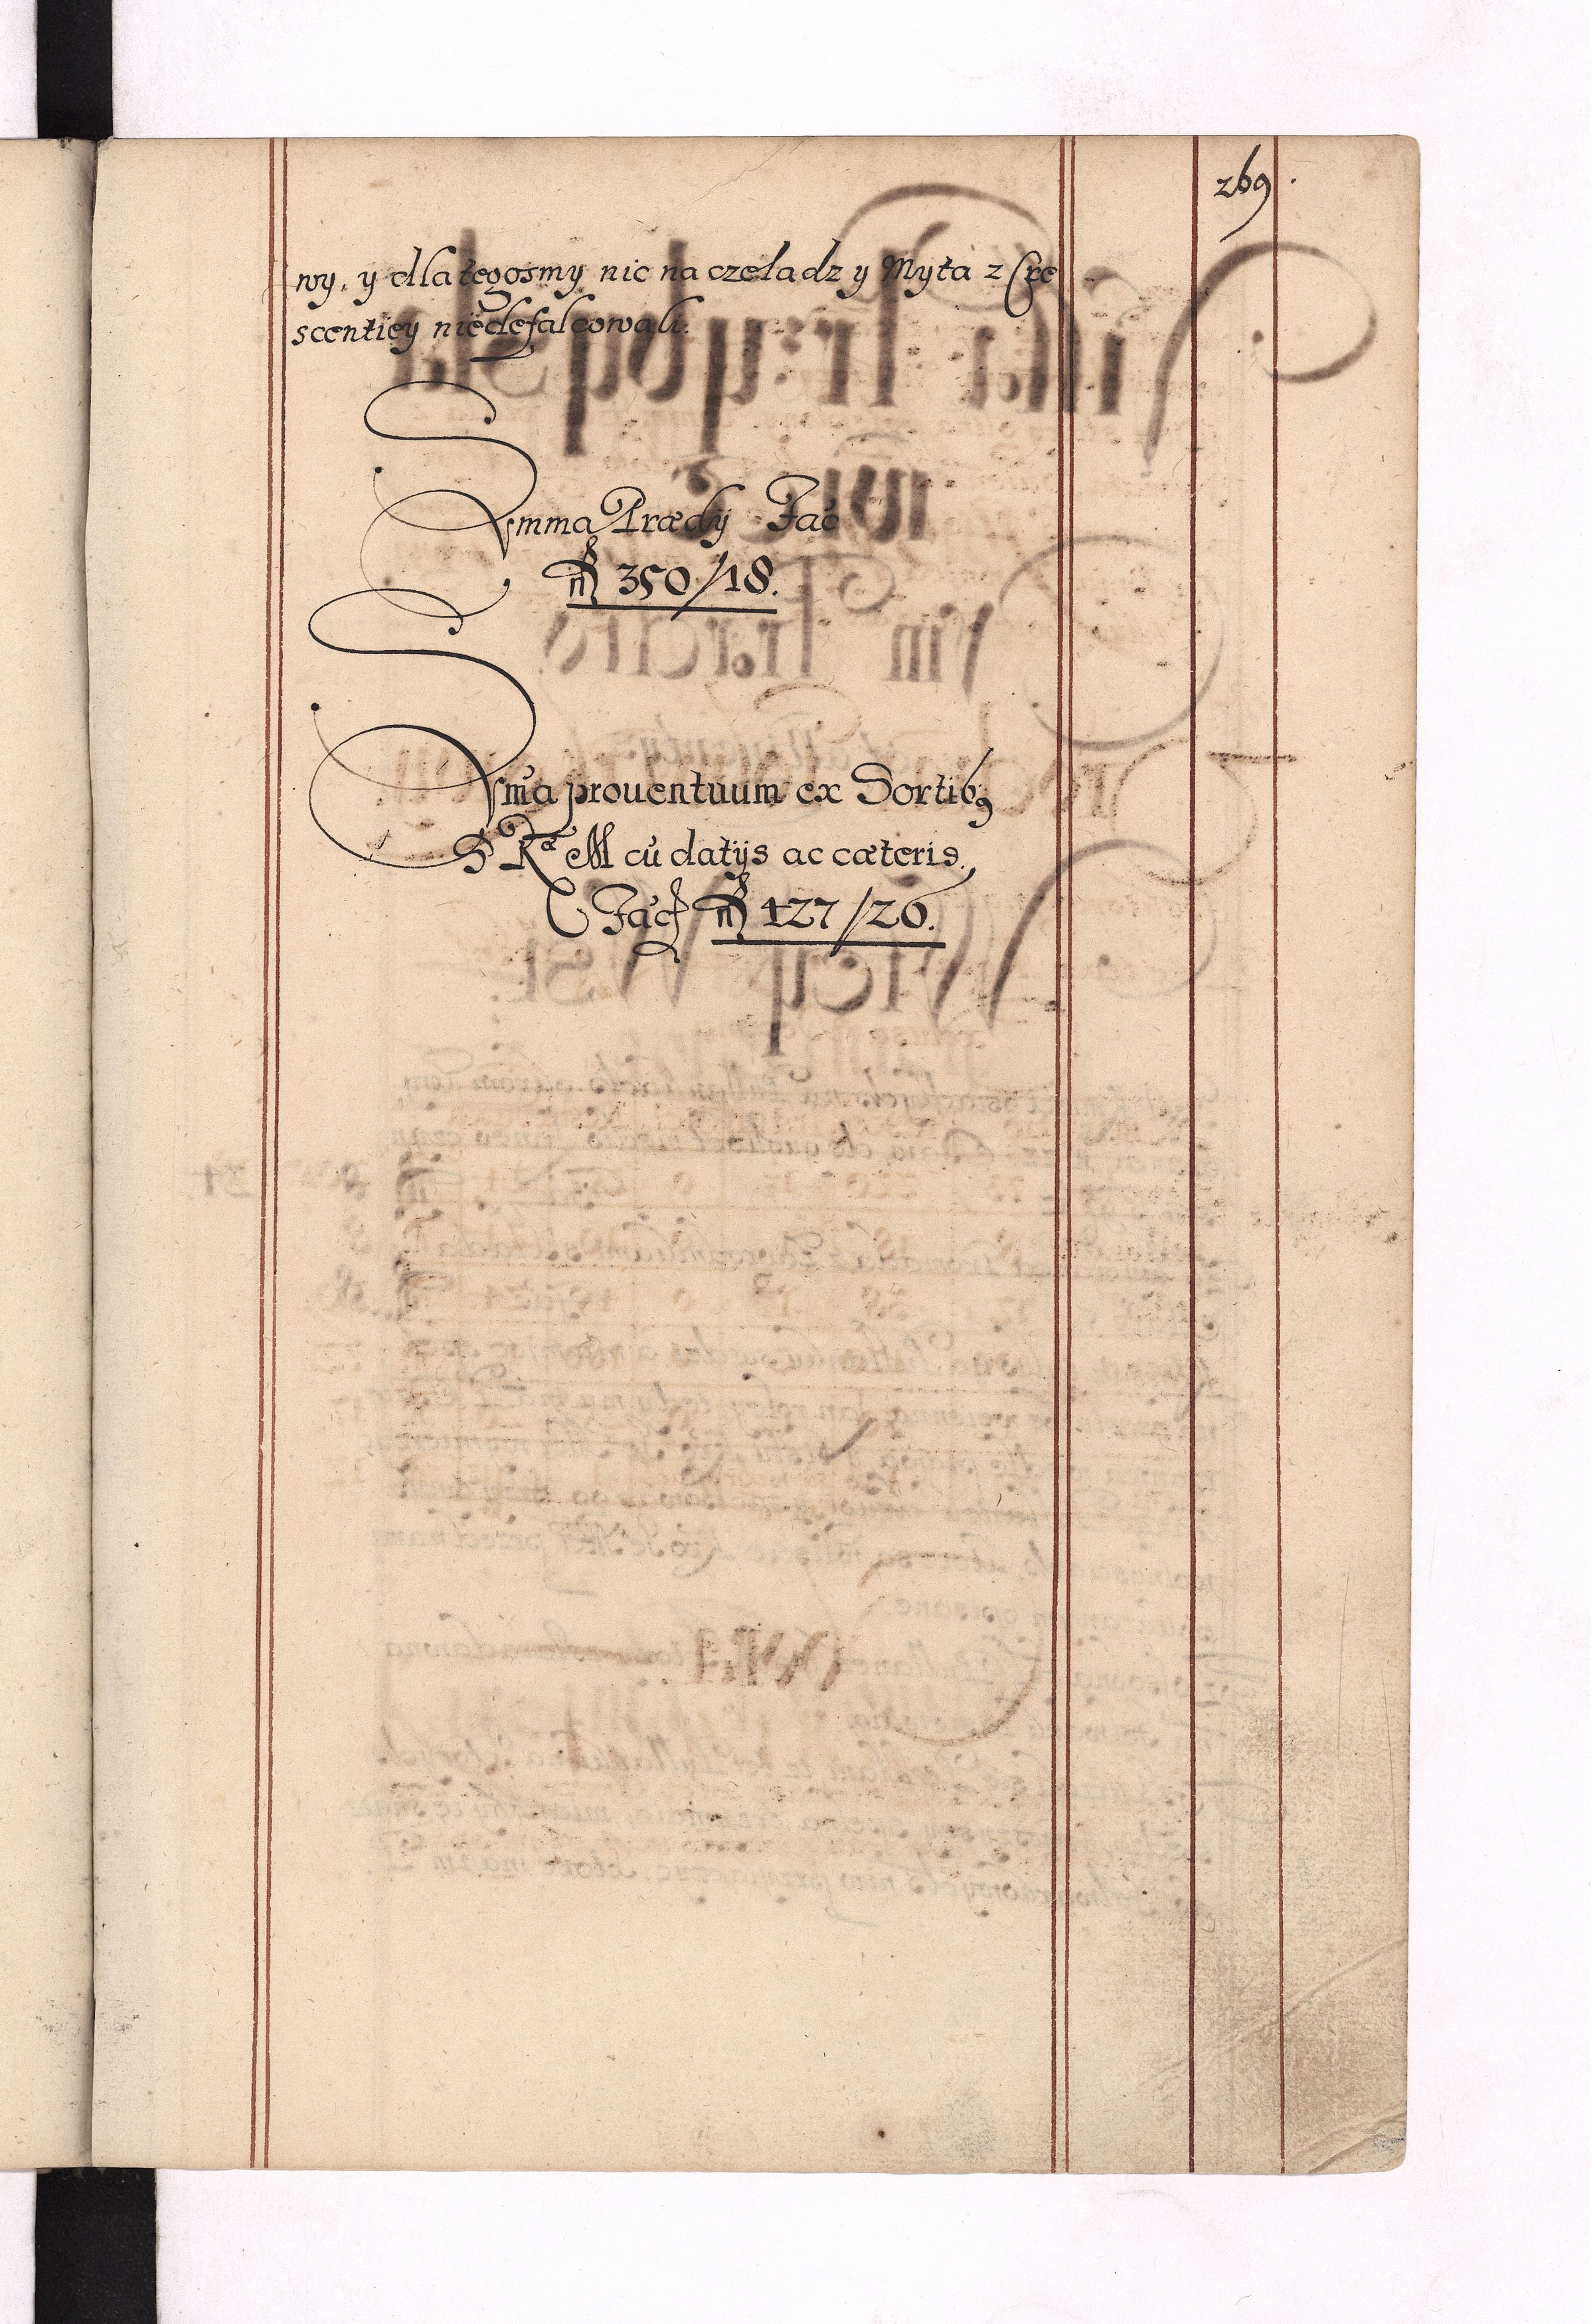 269.
wy, y dlategosmy nic na czeladz y Myta z Cre
scentiey niedefalcowali.
Summa Prædij Fac
fl 350/18.
Sum̃a prouentuum ex Sortib9
S Rᵉ M cũ datijs ac cæteris.
Facit fl 127/26.